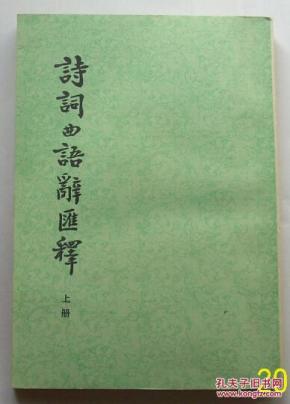 詩詞曲語辭匯釋
上册
20
孔夫子旧书网